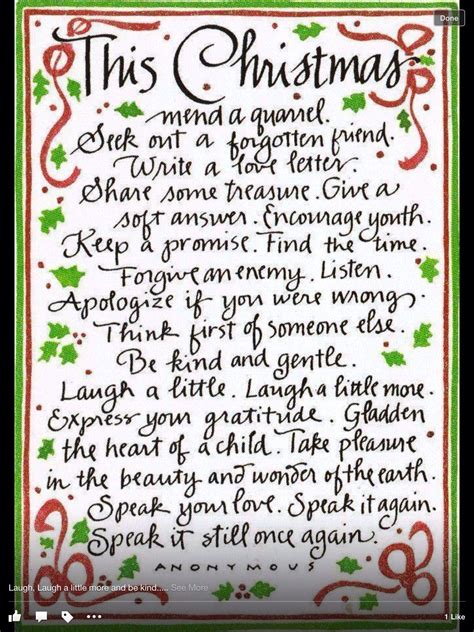 Done
This Christmas
mend a quarrel.
Seek out a forgotten friend.
Write a love letter.
Share some treasure. Give a
soft answer. Encourage youth.
Keep a promise. Find the time.
Forgive an enemy. Listen.
Apologize if you were wrong.
Think first of someone else.
Be kind and gentle.
Laugh a little. Laugh a little more.
Express your gratitude. Gladden
the heart of a child. Take pleasure
in the beauty and wonder of the earth.
Speak your love. Speak it again.
Speak it still once again.
ANONYMOUS
Laugh. Laugh a little more and be kind..... See More
1 Like